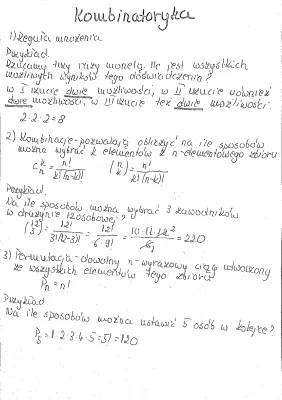 Kombinatoryka
1) Reguła mnożenia
Przykład.
Rzucamy trzy razy monetą. Ile jest wszystkich
możliwych wyników tego doświadczenia?
w I rzucie dwie możliwości, w II rzucie również
dwie możliwości, w III rzucie też dwie możliwości.
2·2·2=8
2) Kombinacje - pozwalają obliczyć na ile sposobów
można wybrać k elementów z n-elementowego zbioru
C_n^k = n!/k!(n-k)! (n k) = n!/k!(n-k)!
Przykład.
Na ile sposobów można wybrać 3 zawodników
w drużynie 12 osobowej?
(12 3) = 12!/3!(12-3)! = 12!/6·9! = 10·11·12²/6₁ = 220
3) Permutacja - dowolny n-wyrazowy ciąg utworzony
ze wszystkich elementów tego zbioru
P_n = n!
Przykład
Na ile sposobów można ustawić 5 osób w kolejce?
P_5 = 1·2·3·4·5 = 5! = 120